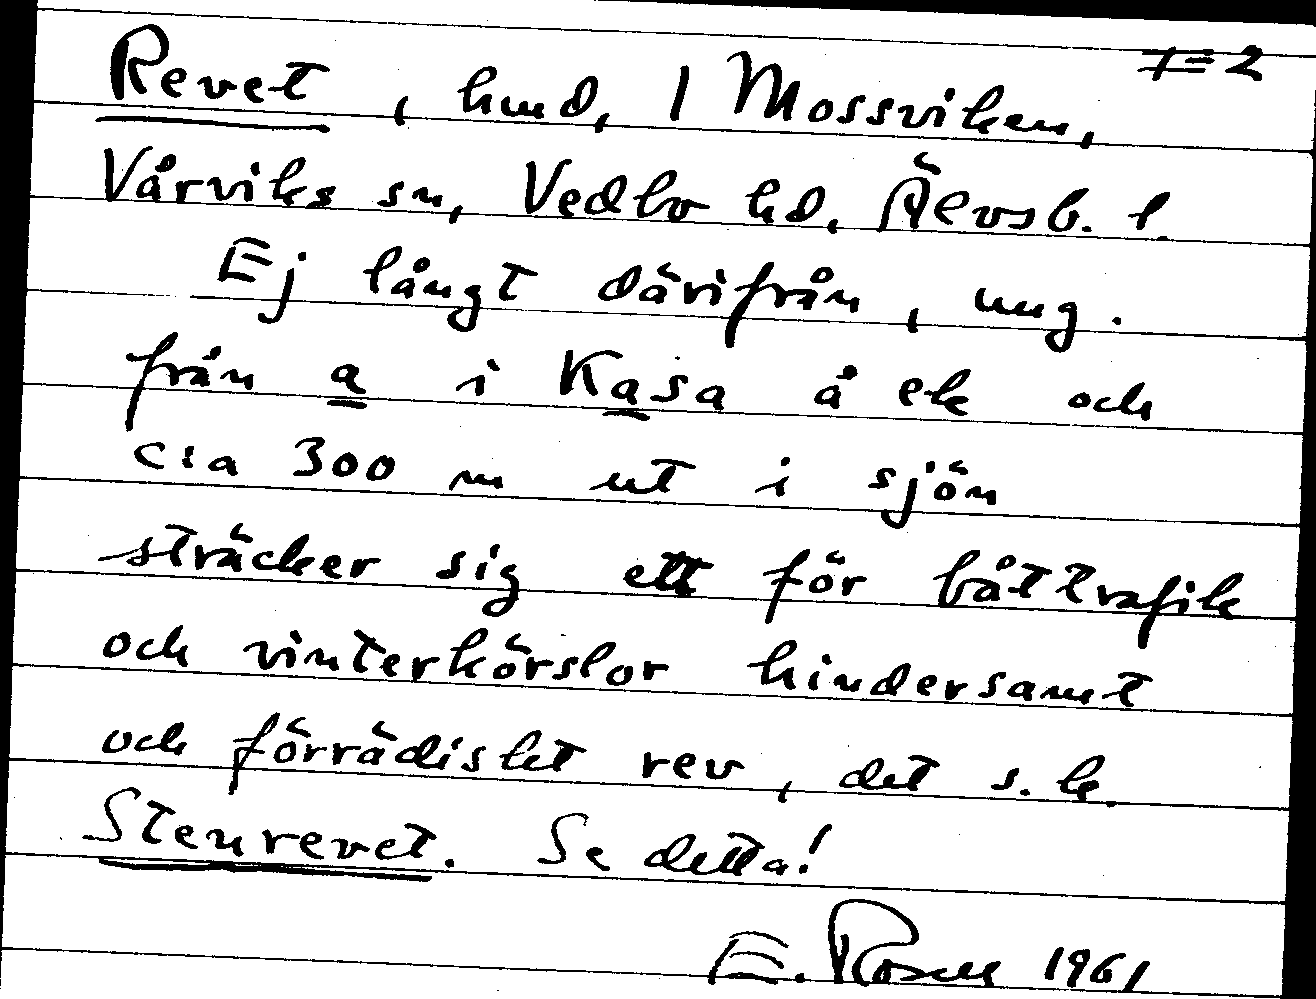 7=2
Revet, hmd, 1 Mossviken,
Vårviks sn, Vedbo hd, Älvsb. l.
Ej långt därifrån, ung.
från a i Kasa å ek och
c:a 300 m ut i sjön
sträcker sig ett för båttrafik
och vinterkörslor hindersamt
och förrädiskt rev, det s.k.
Stenrevet. Se detta!
E. Rosell 1961